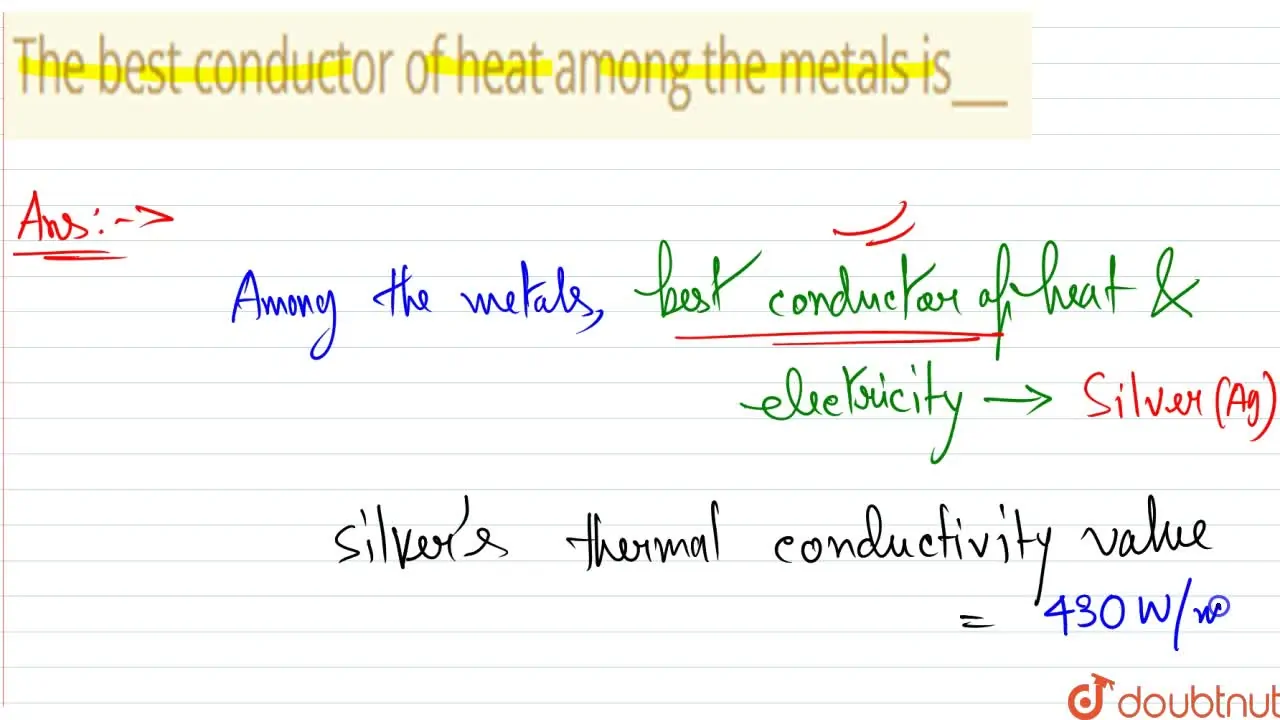 The best conductor of heat among the metals is__
Ans:->
Among the metals, best conductor of heat &
electricity → Silver (Ag)
silver's thermal conductivity value
= 430 W/m
doubtnut